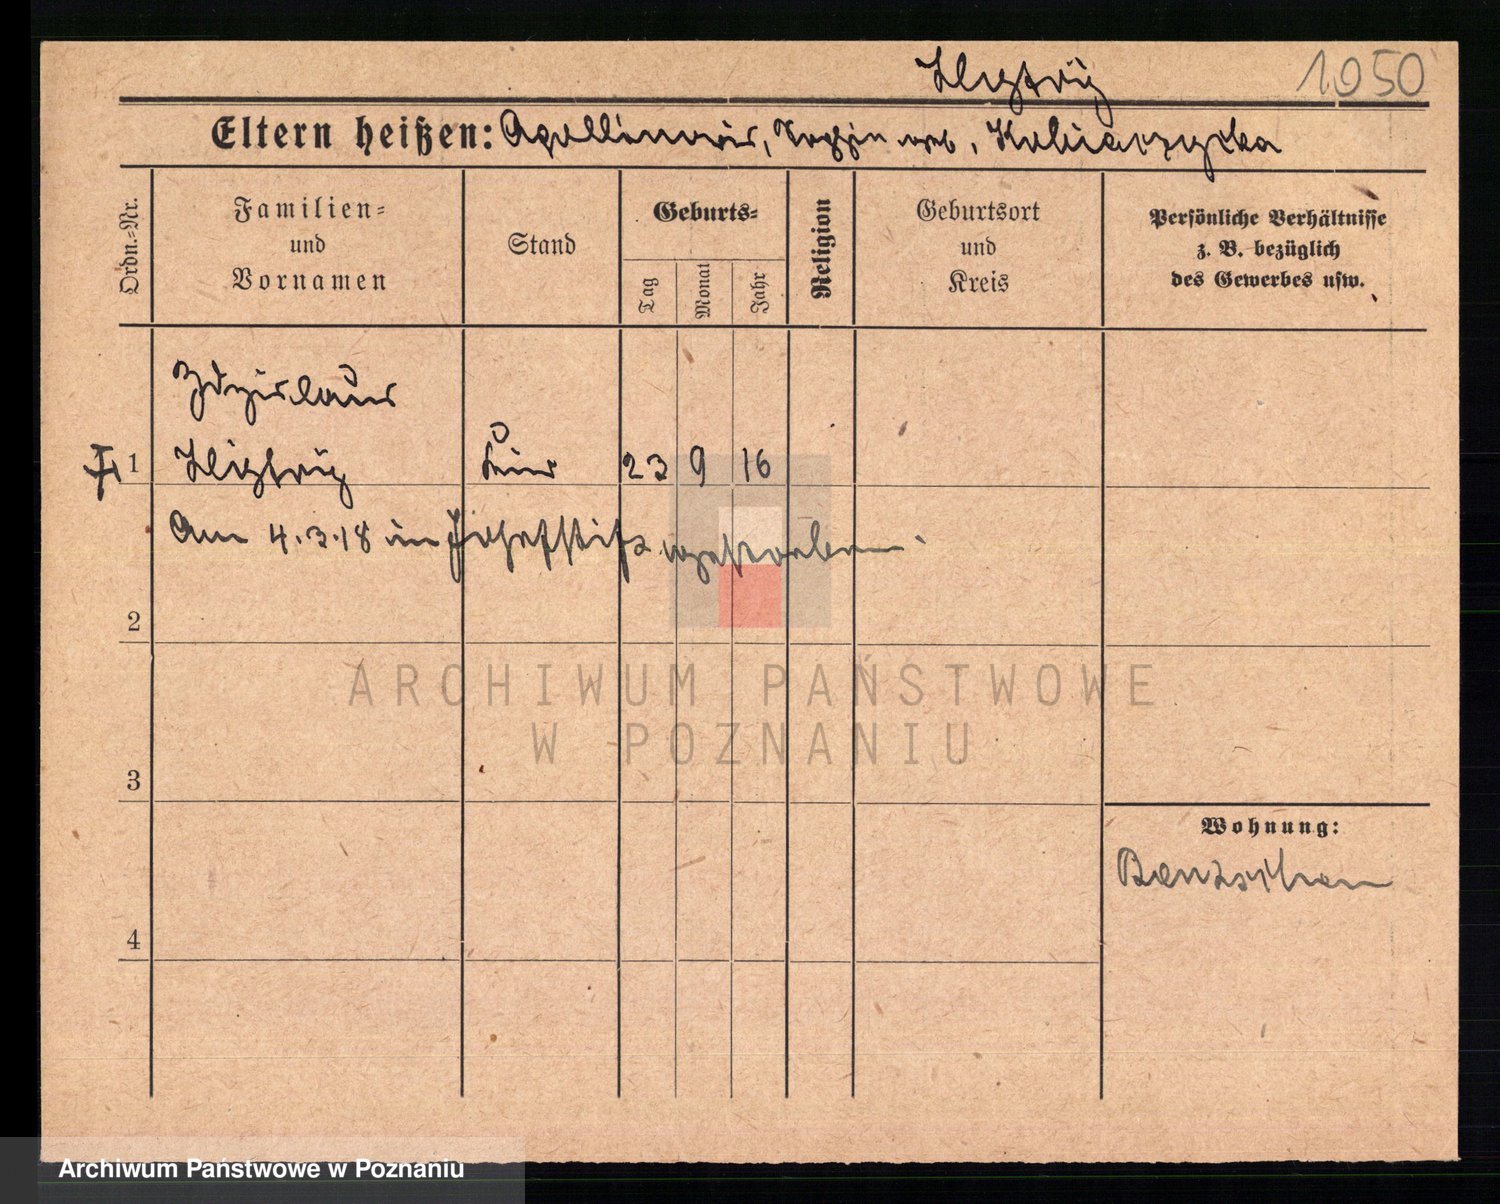 1050
Eltern heißen: Apollinaris, Sophie geb. Kubiaczyka
Ordn.-Nr.
Familien-
und
Vornamen
Stand
Geburts-
Tag
Monat
Jahr
Religion
Geburtsort
und
Kreis
Persönliche Verhältnisse
z. B. bezüglich
des Gewerbes usw.
Zdzislaus
1
Kind
23 9 16
Am 4.3.18 im Josefstift gestorben.
2
3
4
Wohnung:
Bentschen
ARCHIWUM PAŃSTWOWE
W POZNANIU
Archiwum Państwowe w Poznaniu